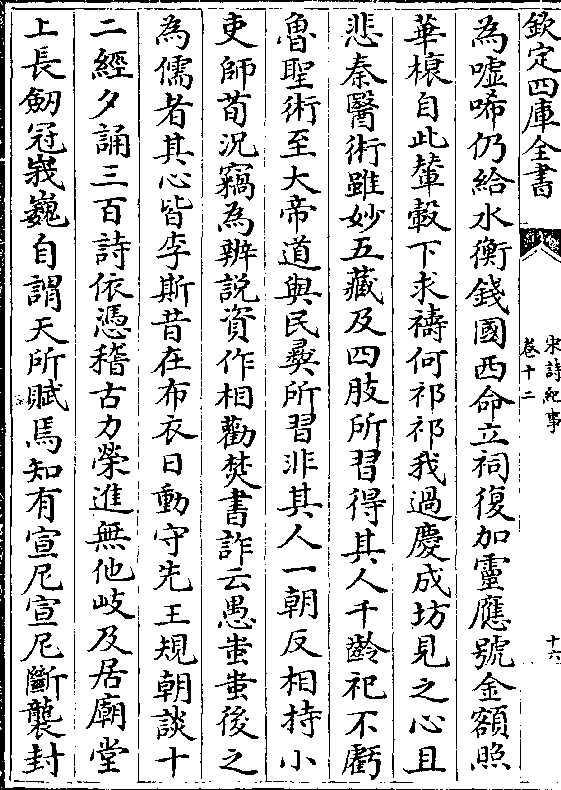 欽定四庫全書
宋詩紀事
卷十二
十六
為嘘唏仍給水衡錢國西命立祠復加靈應號金額照
華榱自此輦轂下求禱何祁祁我過慶成坊見之心且
悲秦醫術雖妙五藏及四肢所習得其人千齡祀不虧
魯聖術至大帝道與民彞所習非其人一朝反相持小
吏師荀況竊為辨說資作相勸焚書詐云愚蚩蚩後之
為儒者其心皆李斯昔在布衣日動守先王規朝談十
二經夕誦三百詩依憑稽古力榮進無他岐及居廟堂
上長劒冠峩巍自謂天所賦焉知有宣尼宣尼斷襲封